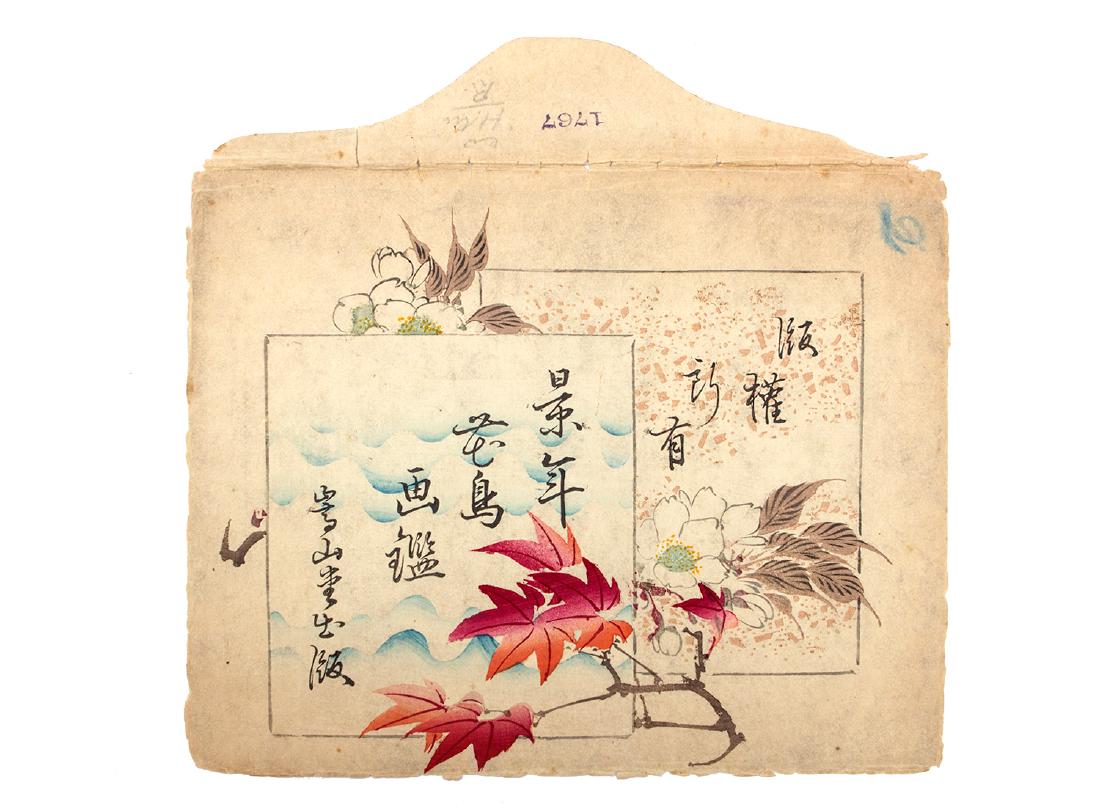 版權
所有
景年
花鳥
画鑑
嵩山堂出版
1767